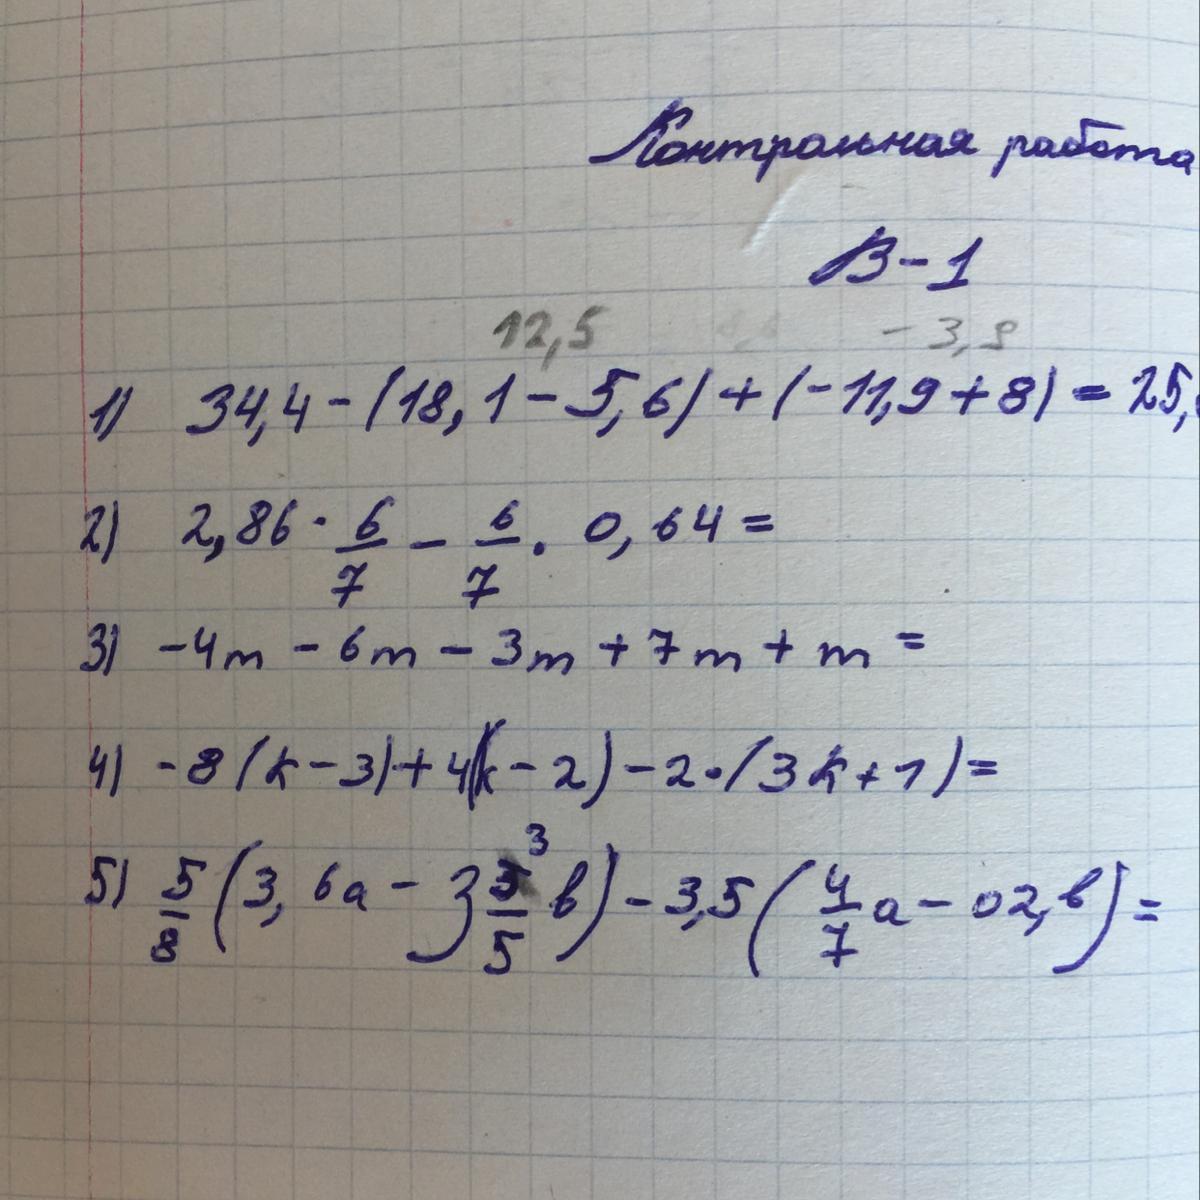 Контрольная работа
В-1
12,5 - 3,9
1) 34,4 - (18,1 - 5,6) + (-11,9 + 8) = 25,
2) 2,86 · 6/7 - 6/7 · 0,64 =
3) -4m - 6m - 3m + 7m + m =
4) -8(k - 3) + 4(k - 2) - 2·(3k + 1) =
5) 5/8 (3,6a - 3 3/5 b) - 3,5 (4/7 a - 02,b) =